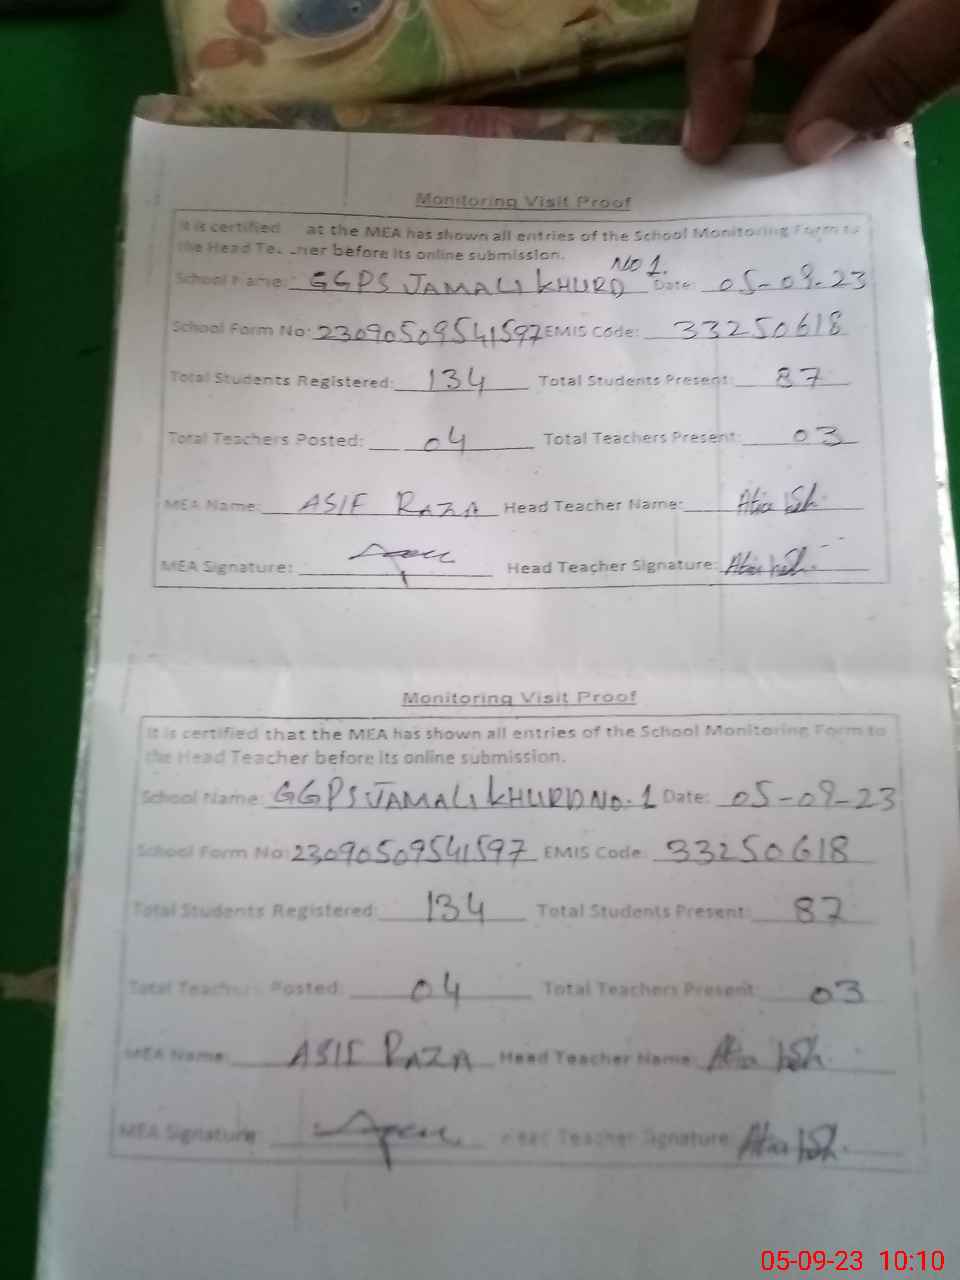 Monitoring Visit Proof
It is certified at the MEA has shown all entries of the School Monitoring Form to
the Head Te. ..her before its online submission.
School Name: GGPS JAMALI KHURD NO 1. Date: 05-09-23
School Form No: 23090509541597 EMIS Code: 33250618
Total Students Registered: 134 Total Students Present: 87
Total Teachers Posted: 04 Total Teachers Present: 03
MEA Name: ASIF RAZA Head Teacher Name:
MEA Signature: Head Teacher Signature:
Monitoring Visit Proof
It is certified that the MEA has shown all entries of the School Monitoring Form to
the Head Teacher before its online submission.
School Name: GGPS JAMALI KHURD NO. 1 Date: 05-09-23
School Form No: 23090509541597 EMIS Code: 33250618
Total Students Registered: 134 Total Students Present: 87
Total Teachers Posted: 04 Total Teachers Present: 03
MEA Name: ASIF RAZA Head Teacher Name:
MEA Signature Head Teacher Signature:
05-09-23 10:10